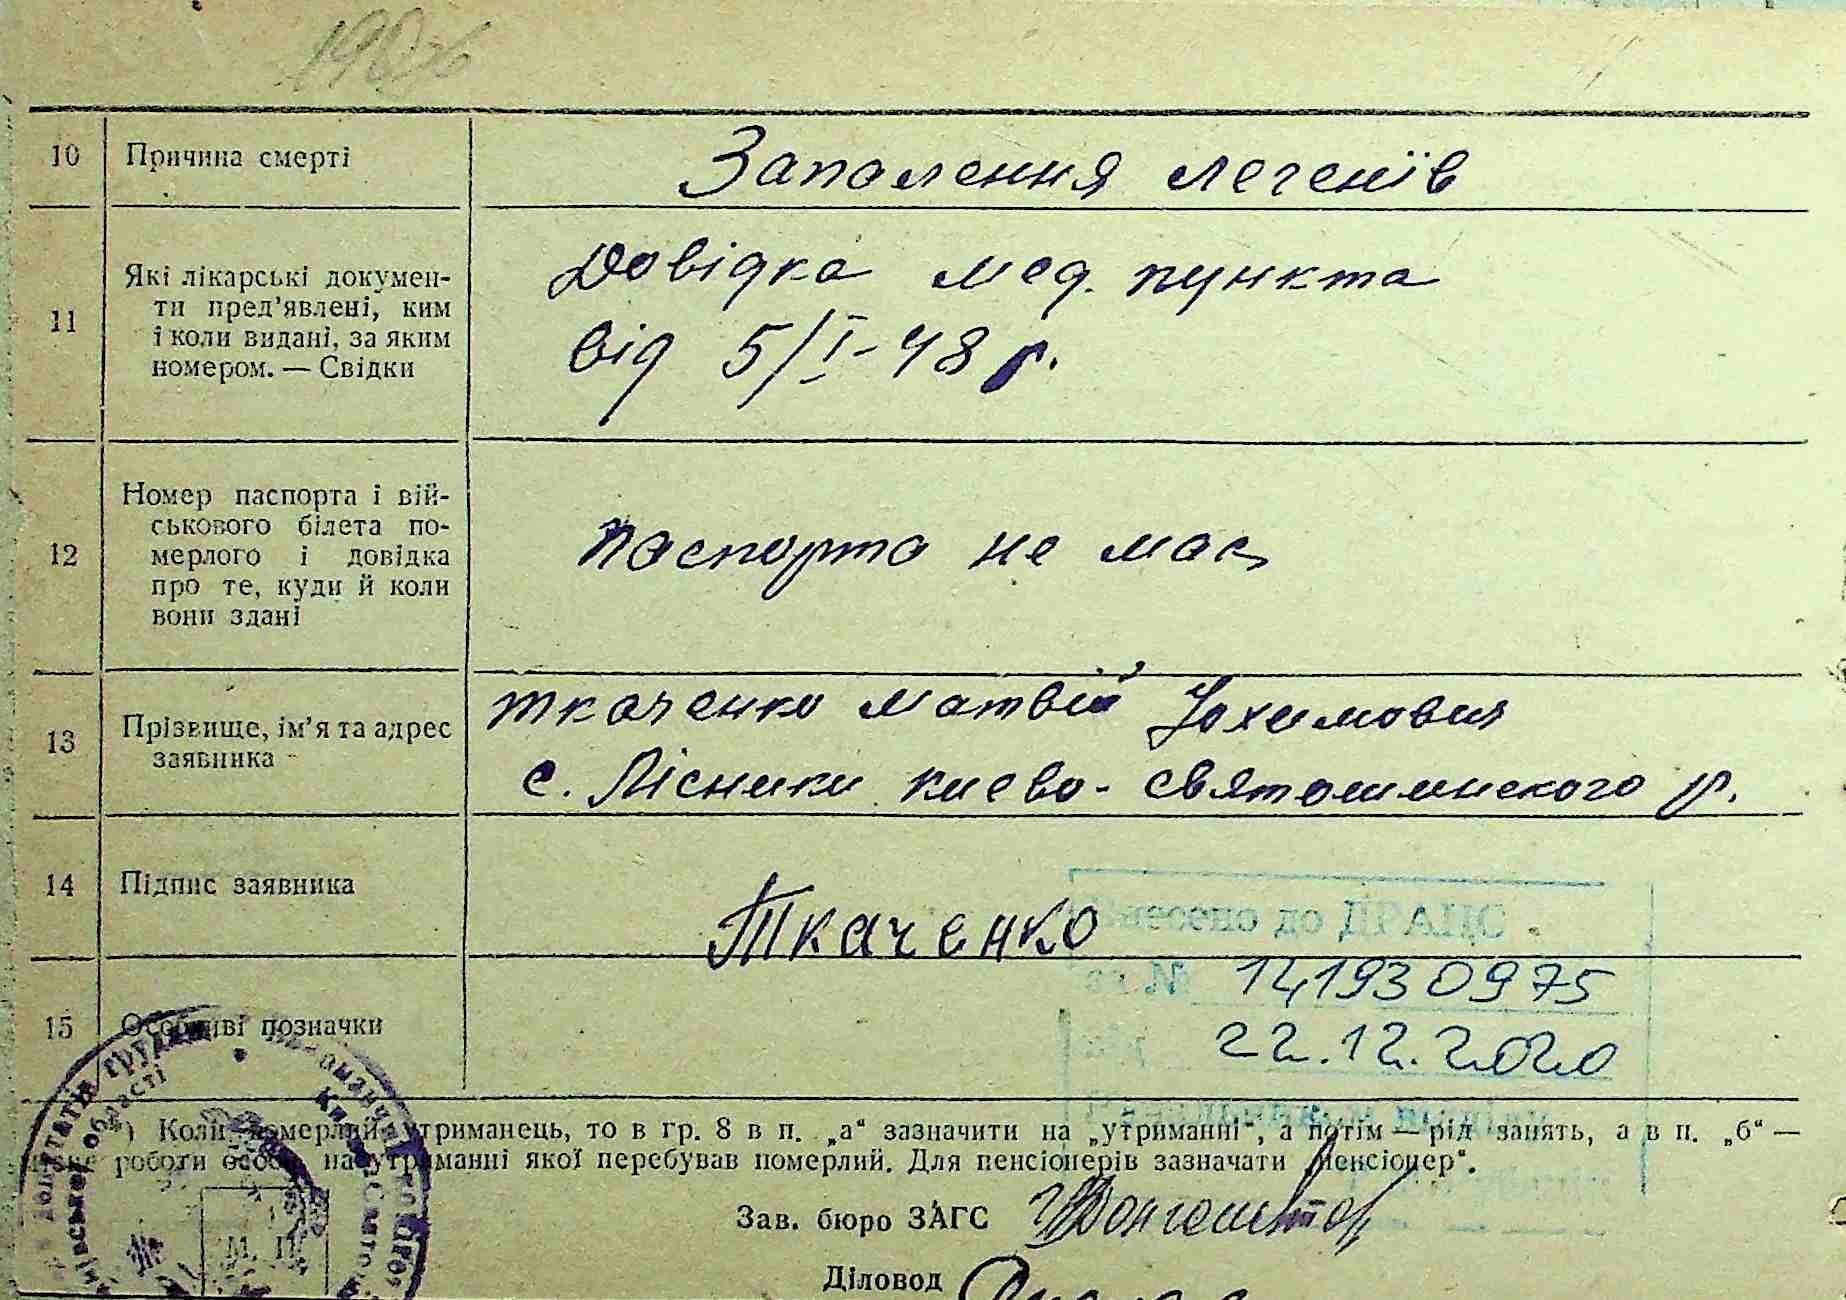 10 Причина смерті Запалення легенів
11 Які лікарські докумен-
ти пред'явлені, ким
і коли видані, за яким
номером. — Свідки
Довідка мед. пункта
від 5/I-48 р.
12 Номер паспорта і вій-
ськового білета по-
мерлого і довідка
про те, куди й коли
вони здані
паспорта не має
13 Прізвище, ім'я та адрес
заявника
Ткаченко Матвій Юхимович
с. Лісники києво-святошинского р.
14 Підпис заявника Ткаченко
Внесено до ДРАЦС
за № 141930975
22.12.2020
15 Особливі позначки
*) Коли померлий утриманець, то в гр. 8 в п. „а“ зазначити на „утриманні“, а потім — рід занять, а в п. „б“ —
роботи особи, на утриманні якої перебував померлий. Для пенсіонерів зазначати „пенсіонер“.
Зав. бюро ЗАГС
М. П.
Діловод